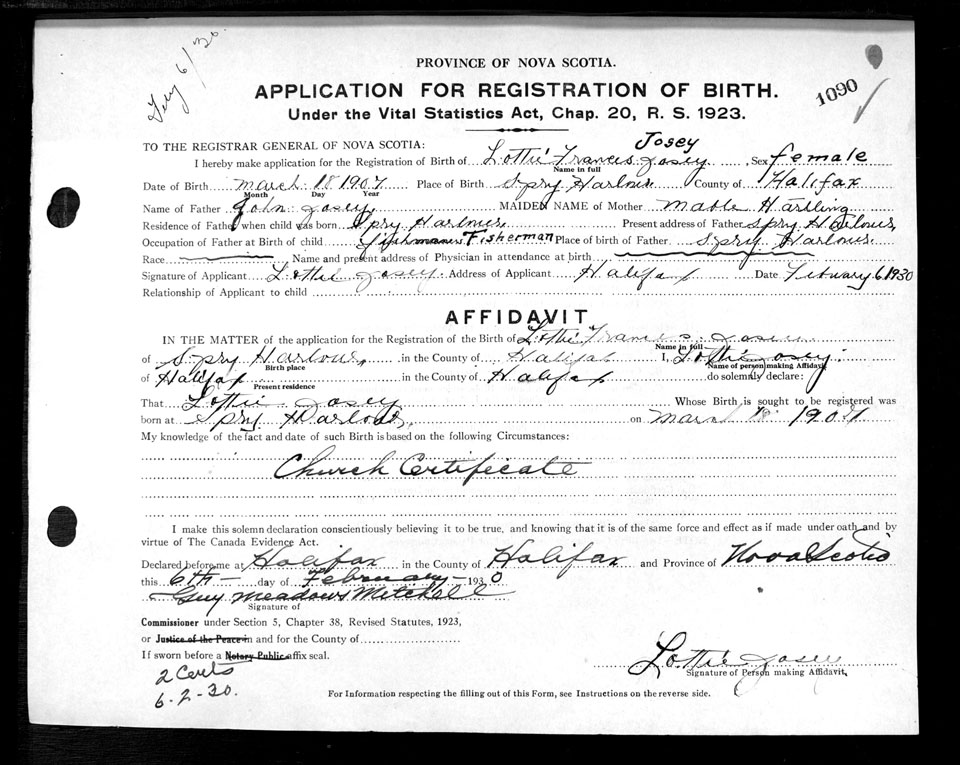 Feby 6/30.
PROVINCE OF NOVA SCOTIA.
1090
APPLICATION FOR REGISTRATION OF BIRTH.
Under the Vital Statistics Act, Chap. 20, R. S. 1923.
TO THE REGISTRAR GENERAL OF NOVA SCOTIA:
Josey
I hereby make application for the Registration of Birth of Lottie Francis Josey, Sex female
Name in full
Date of Birth March 18 1907 Place of Birth Spry Harbour County of Halifax
Month Day Year
Name of Father John Josey MAIDEN NAME of Mother Mable Hartling
Residence of Father when child was born Spry Harbour Present address of Father Spry Harbour
Occupation of Father at Birth of child Fisherman Fisherman Place of birth of Father Spry Harbour
Race Name and present address of Physician in attendance at birth
Signature of Applicant Lottie Josey Address of Applicant Halifax Date February 6 1930
Relationship of Applicant to child
AFFIDAVIT
IN THE MATTER of the application for the Registration of the Birth of Lottie Francis Josey
Name in full
of Spry Harbour, in the County of Halifax I, Lottie Josey
Birth place Name of person making Affidavit
of Halifax in the County of Halifax do solemnly declare:
Present residence
That Lottie Josey Whose Birth is sought to be registered was
born at Spry Harbour on March 18 1907
My knowledge of the fact and date of such Birth is based on the following Circumstances:
Church Certificate
I make this solemn declaration conscientiously believing it to be true, and knowing that it is of the same force and effect as if made under oath and by
virtue of The Canada Evidence Act.
Declared before me at Halifax in the County of Halifax and Province of Nova Scotia
this 6th day of February 1930
Guy Meadows Mitchell
Signature of
Commissioner under Section 5, Chapter 38, Revised Statutes, 1923,
or Justice of the Peace in and for the County of
If sworn before a Notary Public affix seal.
Lottie Josey
Signature of Person making Affidavit.
2 Certs
6-2-30.
For Information respecting the filling out of this Form, see Instructions on the reverse side.